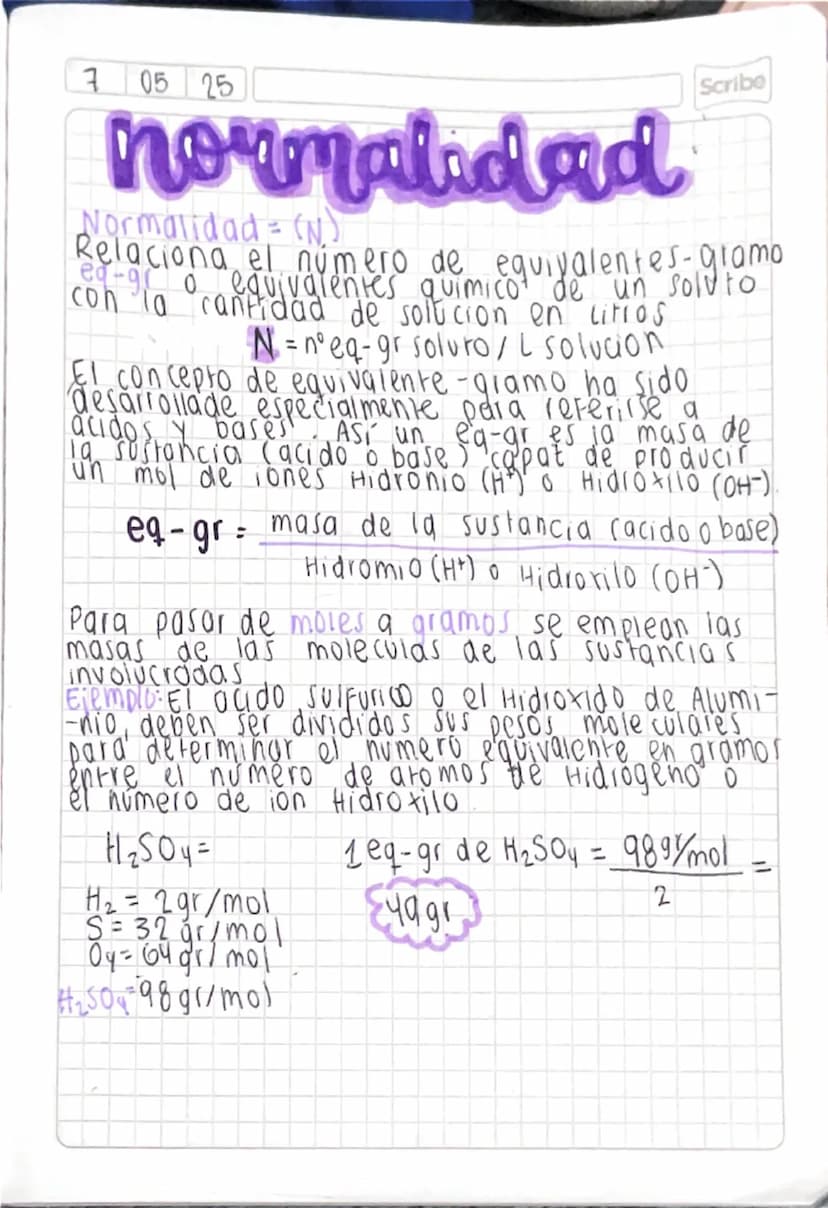 7 05 25
Scribe
normalidad
Normalidad = (N)
Relaciona el número de equivalentes-gramo
eq-gr o equivalentes químico de un soluto
con la cantidad de solucion en litros
N = nº eq-gr soluto / L solucion
El concepto de equivalente-gramo ha sido
desarrollade especialmente para referirse a
ácidos y bases. Así un eq-gr es la masa de
la sustancia (acido o base) capat de producir
un mol de iones Hidronio (H⁺) o Hidróxilo (OH⁻).
eq-gr = masa de la sustancia (acido o base)
Hidromio (H⁺) o Hidroxilo (OH⁻)
Para pasar de moles a gramos se emplean las
masas de las moleculas de las sustancias
involucrdas
Ejemplo: El acido sulfurico o el Hidroxido de Alumi-
-nio, deben ser divididos sus pesos moleculares
para determinar el numero equivalente en gramos
entre el número de atomos de Hidrógeno o
el número de ion Hidroxilo.
H₂SO₄= 1 eq-gr de H₂SO₄ = 98 gr/mol =
2
H₂ = 2gr/mol 49 gr
S = 32 gr/mol
O₄= 64 gr/mol
H₂SO₄=98 gr/mol